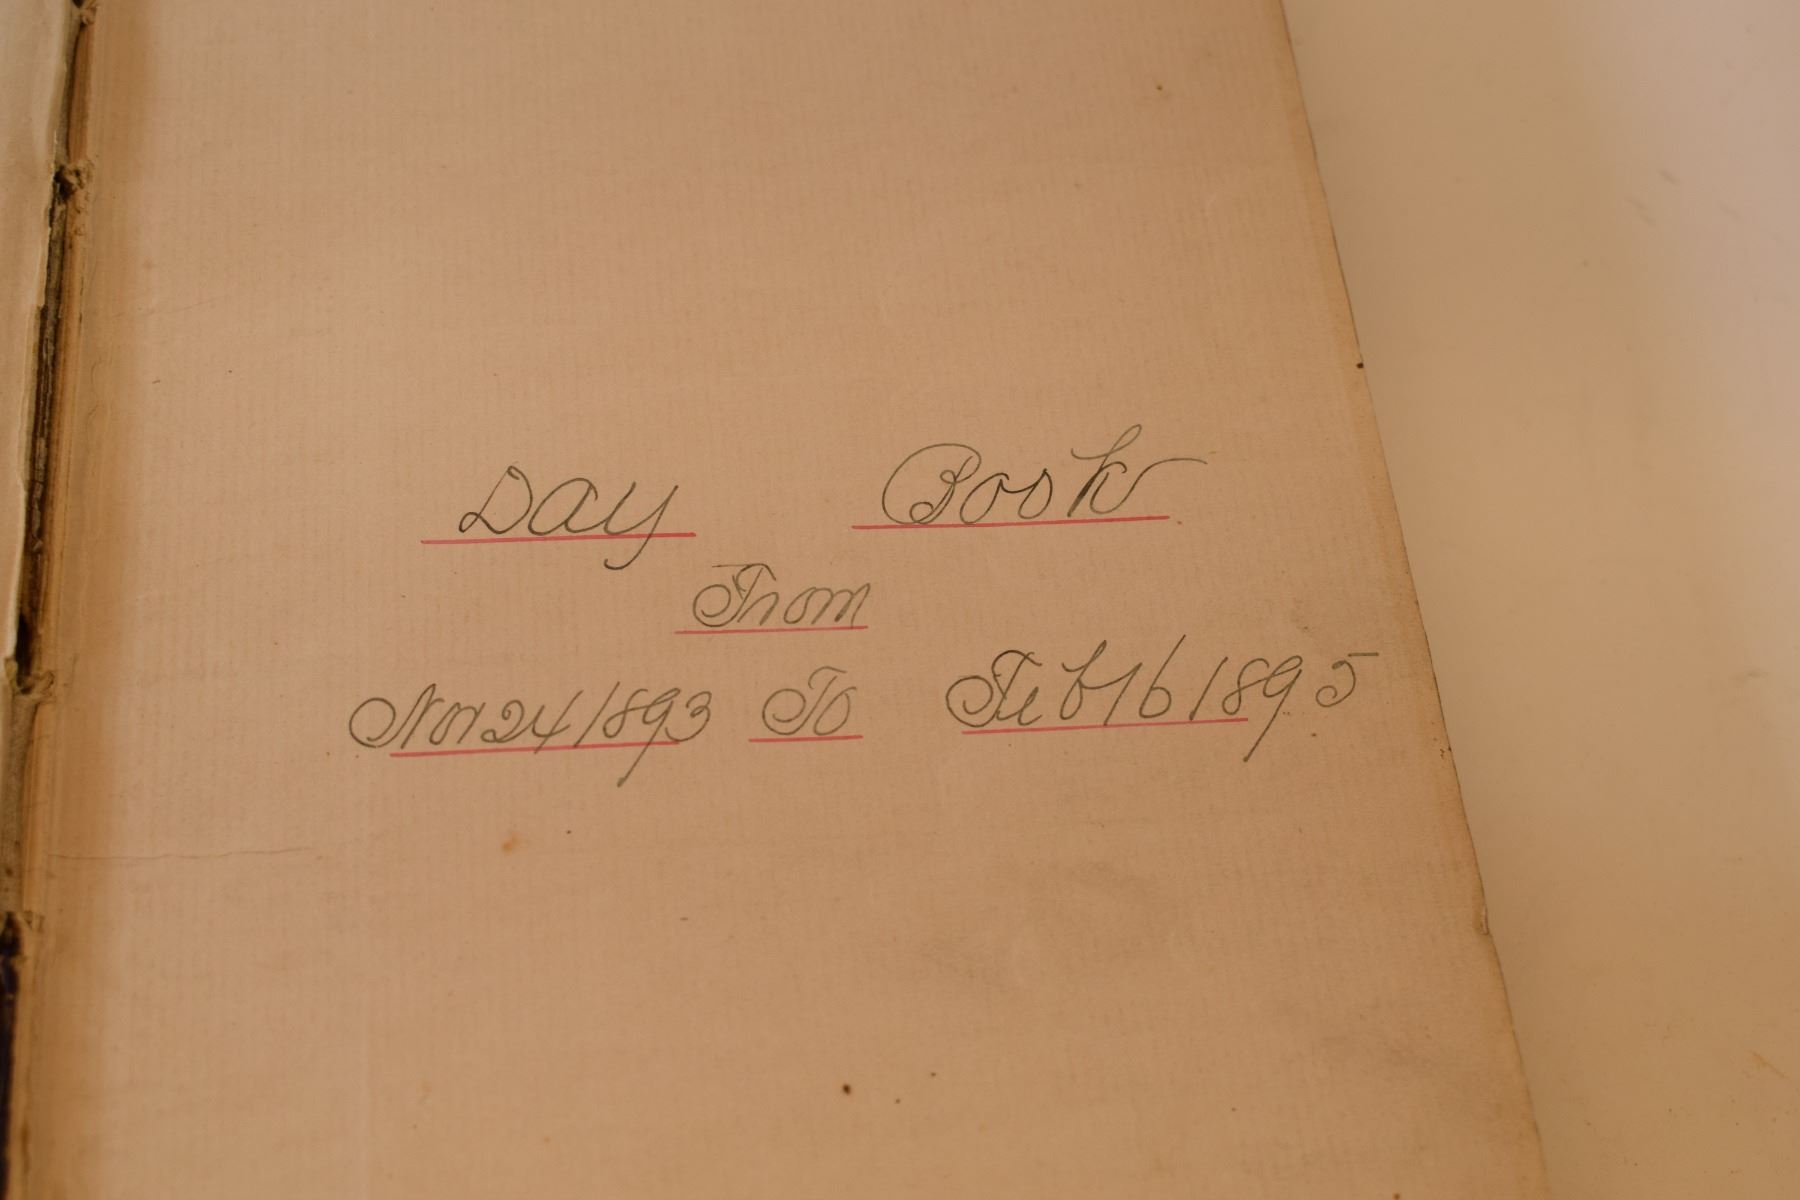 Day Book
From
Nov 24 1893 To Feb 16 1895